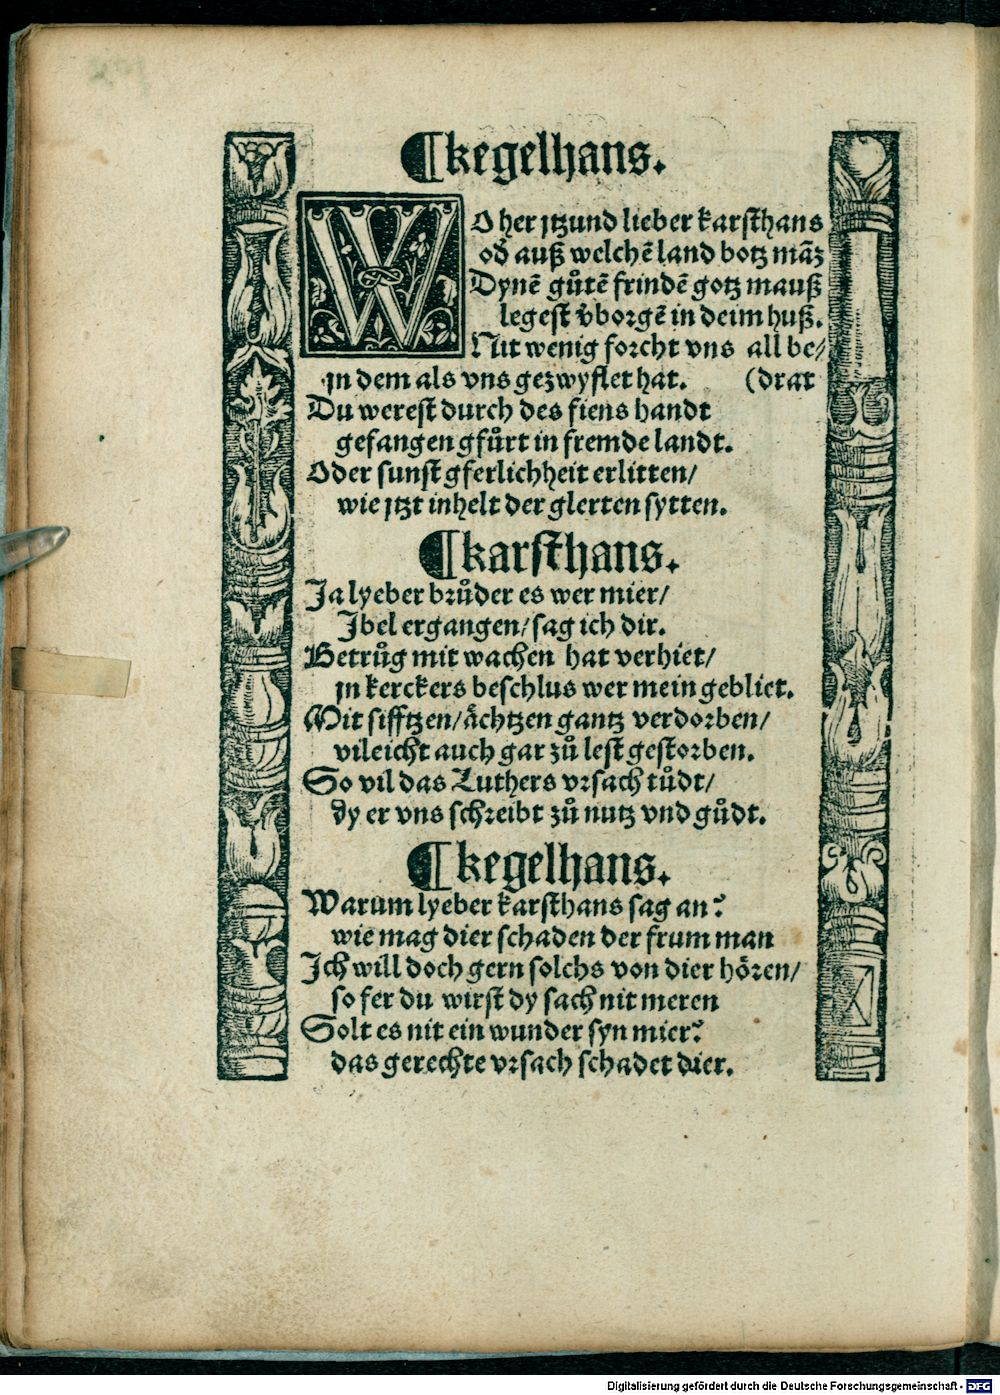 ¶kegelhans.
WO her jtzund lieber karsthans
od̕ auß welchē land botz mãʒ
Dynē gůtē frindē gotz mauß
legest v̕borgē in deim huß.
Nit wenig forcht vns all be/
jn dem als vns gezwyflet hat. (drat
Du werest durch des fiens handt
gefangen gfůrt in fremde landt.
Oder sunst gferlichheit erlitten/
wie jtzt inhelt der glerten sytten.
¶karsthans.
Ja lyeber brůder es wer mier/
Jbel ergangen/ sag ich dir.
Betrůg mit wachen hat verhiet/
jn kerckers beschlus wer mein gebliet.
Mit sifftzen/ ächtzen gantz verdorben/
vileicht auch gar zů lest gestorben.
So vil das Luthers vrsach tůdt/
dy er vns schreibt zů nutz vnd gůdt.
¶kegelhans.
Warum lyeber karsthans sag an?
wie mag dier schaden der frum man
Ich will doch gern solchs von dier hören/
so fer du wirst dy sach nit meren
Solt es nit ein wunder syn mier?
das gerechte vrsach schadet dier.
Digitalisierung gefördert durch die Deutsche Forschungsgemeinschaft - DFG